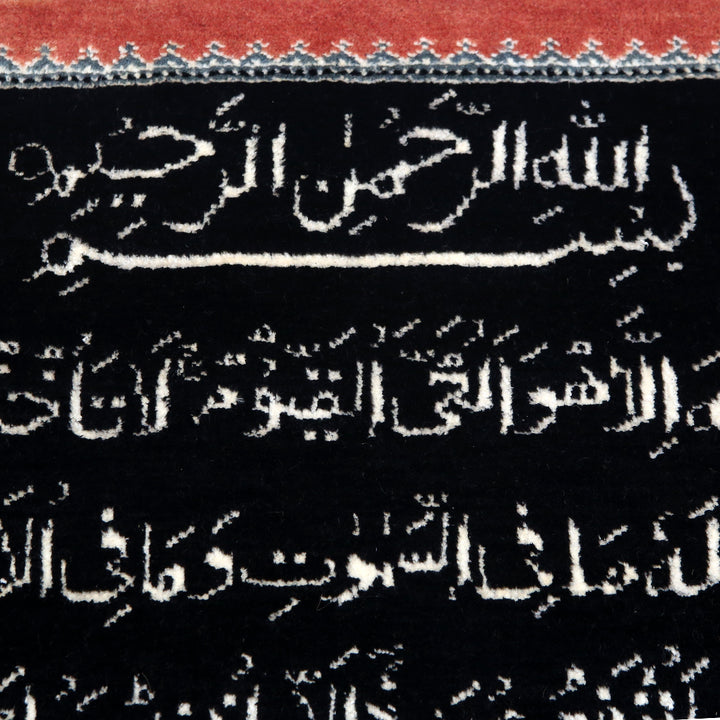 بِسْمِ اللهِ الرَّحْمٰنِ الرَّحِيْمِ
اِلَّا هُوَ اَلْحَيُّ الْقَيُّوْمُ لَا تَاْخُ
لَهُ مَا فِي السَّمٰوٰتِ وَمَا فِي الْاَ